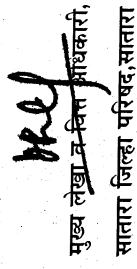 मुख्य लेखा व वित्त अधिकारी,
सातारा जिल्हा परिषद,सातारा